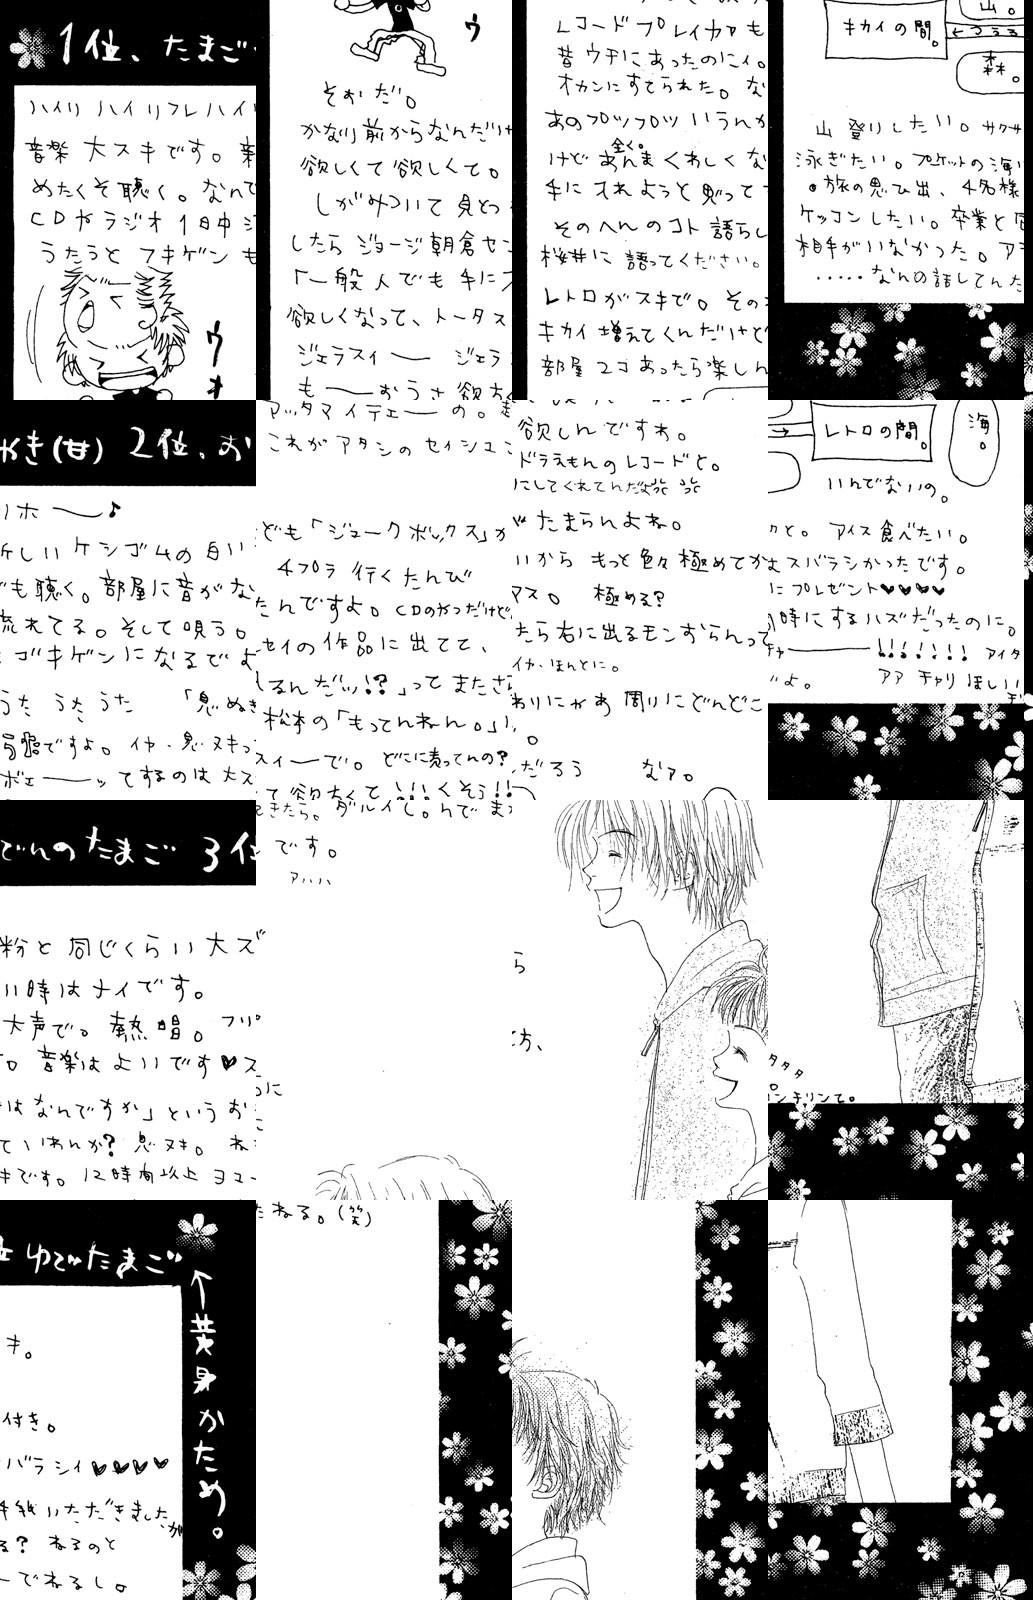 1位、たまご
ハイリ ハイリフレ ハイ
音楽 大スキです。新
めたくそ聴く。なんで
CDやラジオ 1日中
うたうと フキゲン も
ウ
ウ
そおだ。
かなり前からなんだけ
欲しくて欲しくて。
しがみついて 見とっ
したら ジョージ朝倉セン
「一般人でも 手に入
欲しくなって、トータス
ジェラスィー ジェラ
も――おうさ 欲
レコードプレイヤァも
昔ウチにあったのにィ。
オカンにすてられた。な
あのプツップツッ いうんが
けど 全く。あんまくわしくな
手に入れようと思って
そのへんのコト 語らし
桜井に語ってください。
レトロがスキで。その
キカイ増えてくんだけど
部屋 2コあったら楽しん
キカイの間。
山。
つうろ
森。
山登りしたい。サクサ
泳ぎたい。プロケットの海
旅の思ひ出、4名様
ケッコンしたい。卒業と同
相手がいなかった。ア
‥‥‥なんの話してんだ
やき(甘) 2位、お
リホ――♪
新しいケシゴムの白い
でも聴く。部屋に音がな
流れてる。そして唄う。
ゴキゲンになるでよ
うた うた うた 「息ぬき
ですよ。イヤ・息ヌキっ
ボエ――ッてするのは大ス
アッタマイテェ――の。
これがアタシのセイシュン
ども「ジュークボックス」が
4プラ 行くたんび
たんですよ。CDのやつだけど
セイの作品に出てて、
るんだッ!?」って またさら
松本の「もってんねん。」
スィ――で。どこに売ってんの?
て欲なくて!!!くそう!!
きたら。ダルイし。んで まっ
欲しんですわ。
ドラえもんのレコードと。
にしてくれてんだ
たまらんよね。
いから もっと色々極めてか
アス。 極める?
たら右に出るモンおらんって
イヤ・ほんとに。
わりにがあ 周りにどんどこ
。
だろう なァ。
レトロの間。
海。
いんでないの。
クと。アイス食べたい。
むスバラシかったです。
にプレゼント♥♥♥♥
時にするハズだったのに。
チャ――――!!!!!!! アイタ
よ。 アア チャリ ほしい
でんのたまご 3位
粉と同じくらい大ズ
い時はナイです。
大声で。熱唱。フリ
。音楽はよいです♥ス
はなんですか」という お
ていわんか? 息ヌキ。 ね
キです。12時間以上 ヨユー
です。
アハハ
に
ら
坊、
タタタ
。
ンチリンて。
ゆでたまご
←黄身かため。
キ。
付き。
バラシイ♥♥♥♥
手紙いただきましたが
る? ねるのと
ーでねるし。
たねる。(笑)